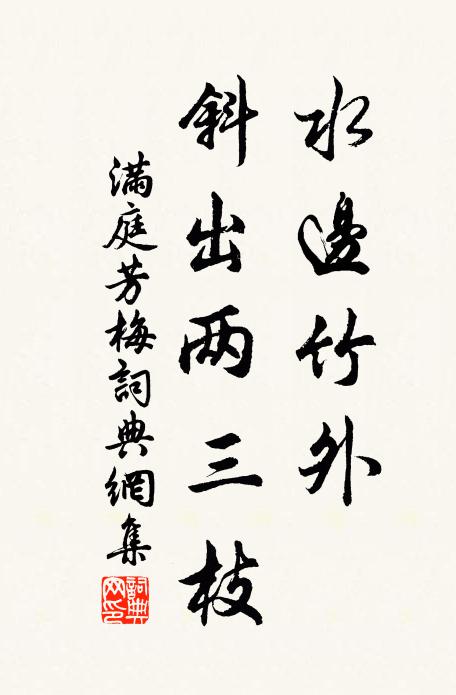 水邊竹外
斜出两三枝
满庭芳梅詞典網集
詞典网印